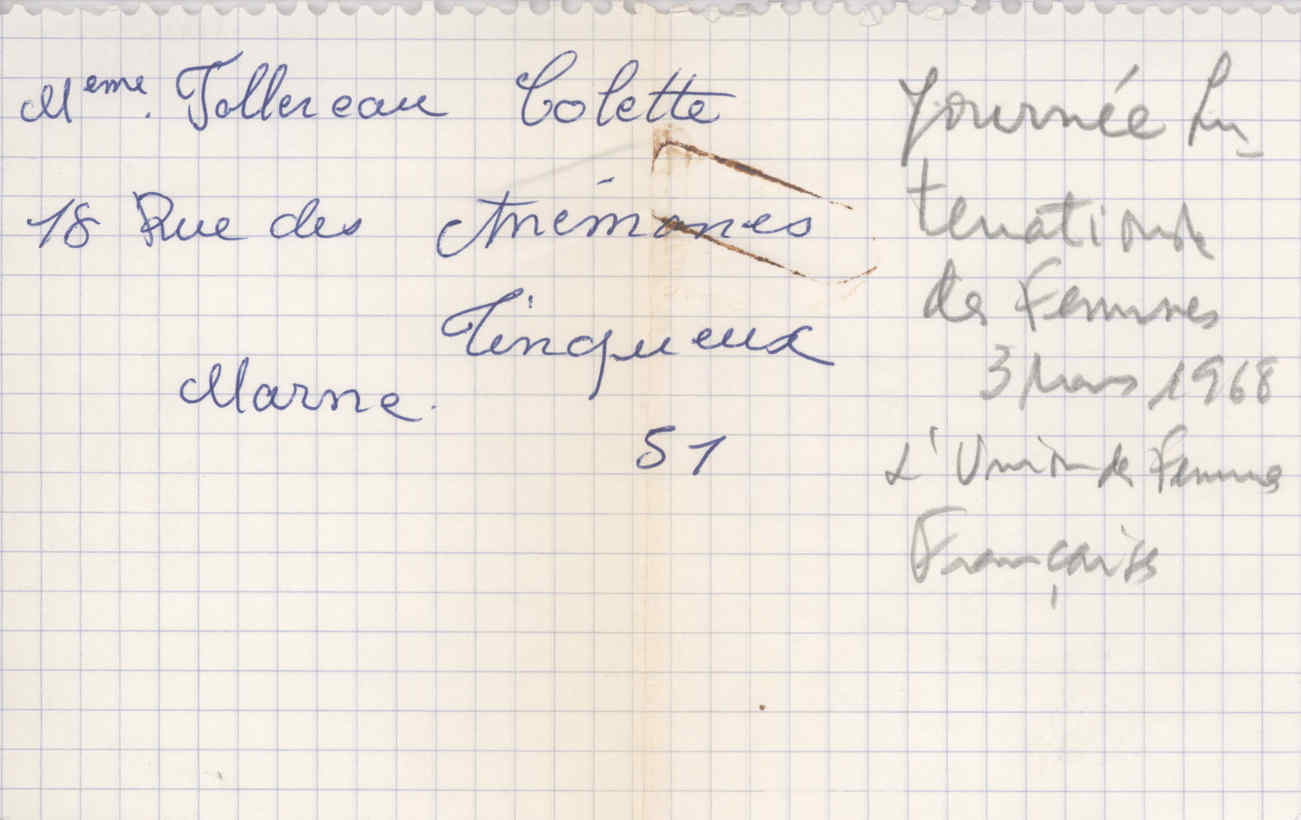 Meme. Follereau Colette
18 Rue des Anémones
Tinqueux
Marne.
51
Journée In_
ternationale
des Femmes
3 Mars 1968
L'Union des Femmes
Françaises